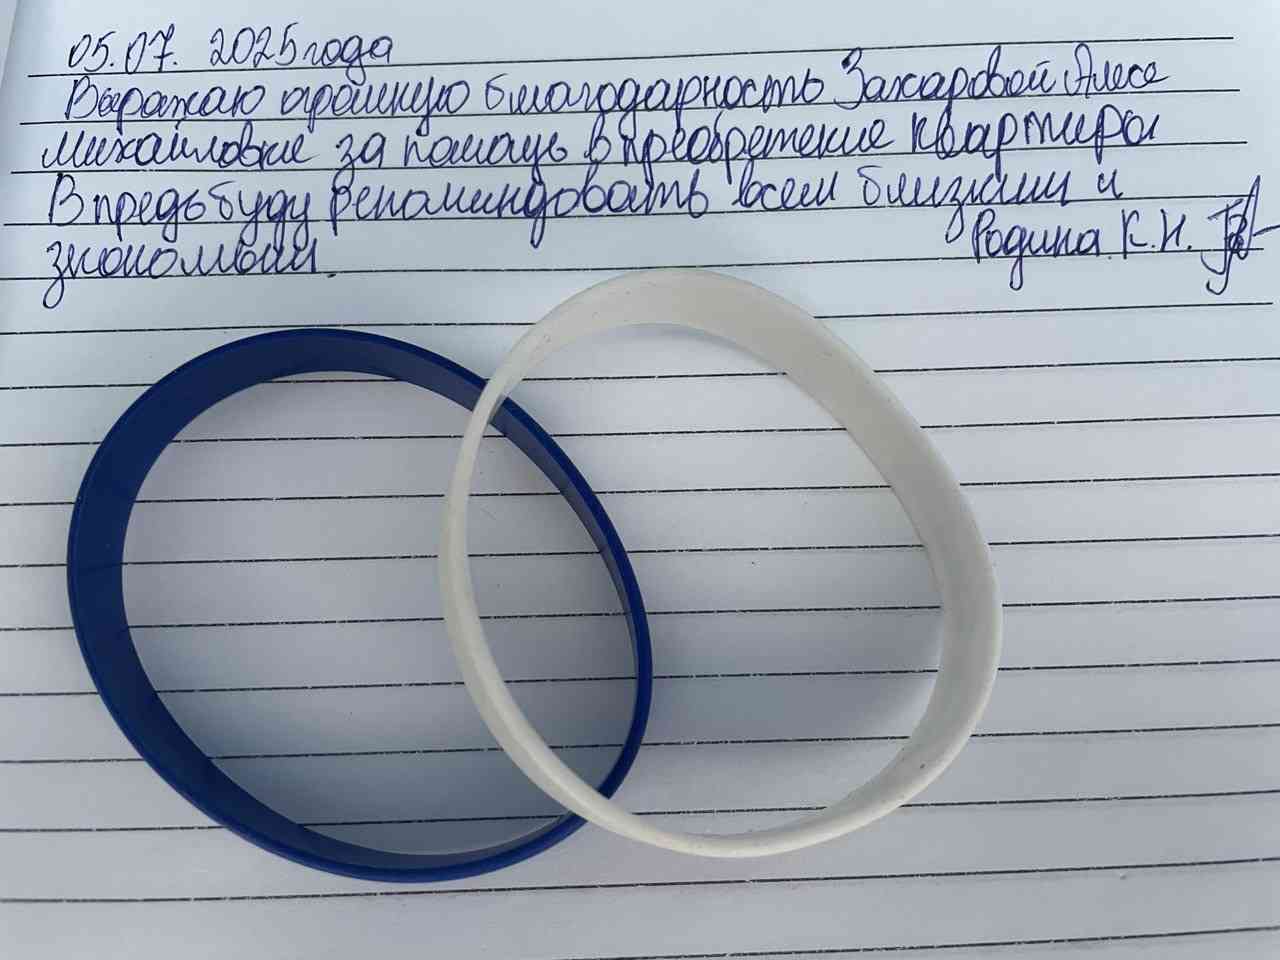 05.07. 2025 года
Выражаю огромную благодарность Захаровой Алесе
Михайловне за помощь в преобретение квартиры
В предь буду рекоминдовать всем близким и
знакомым. Родина К.Н.